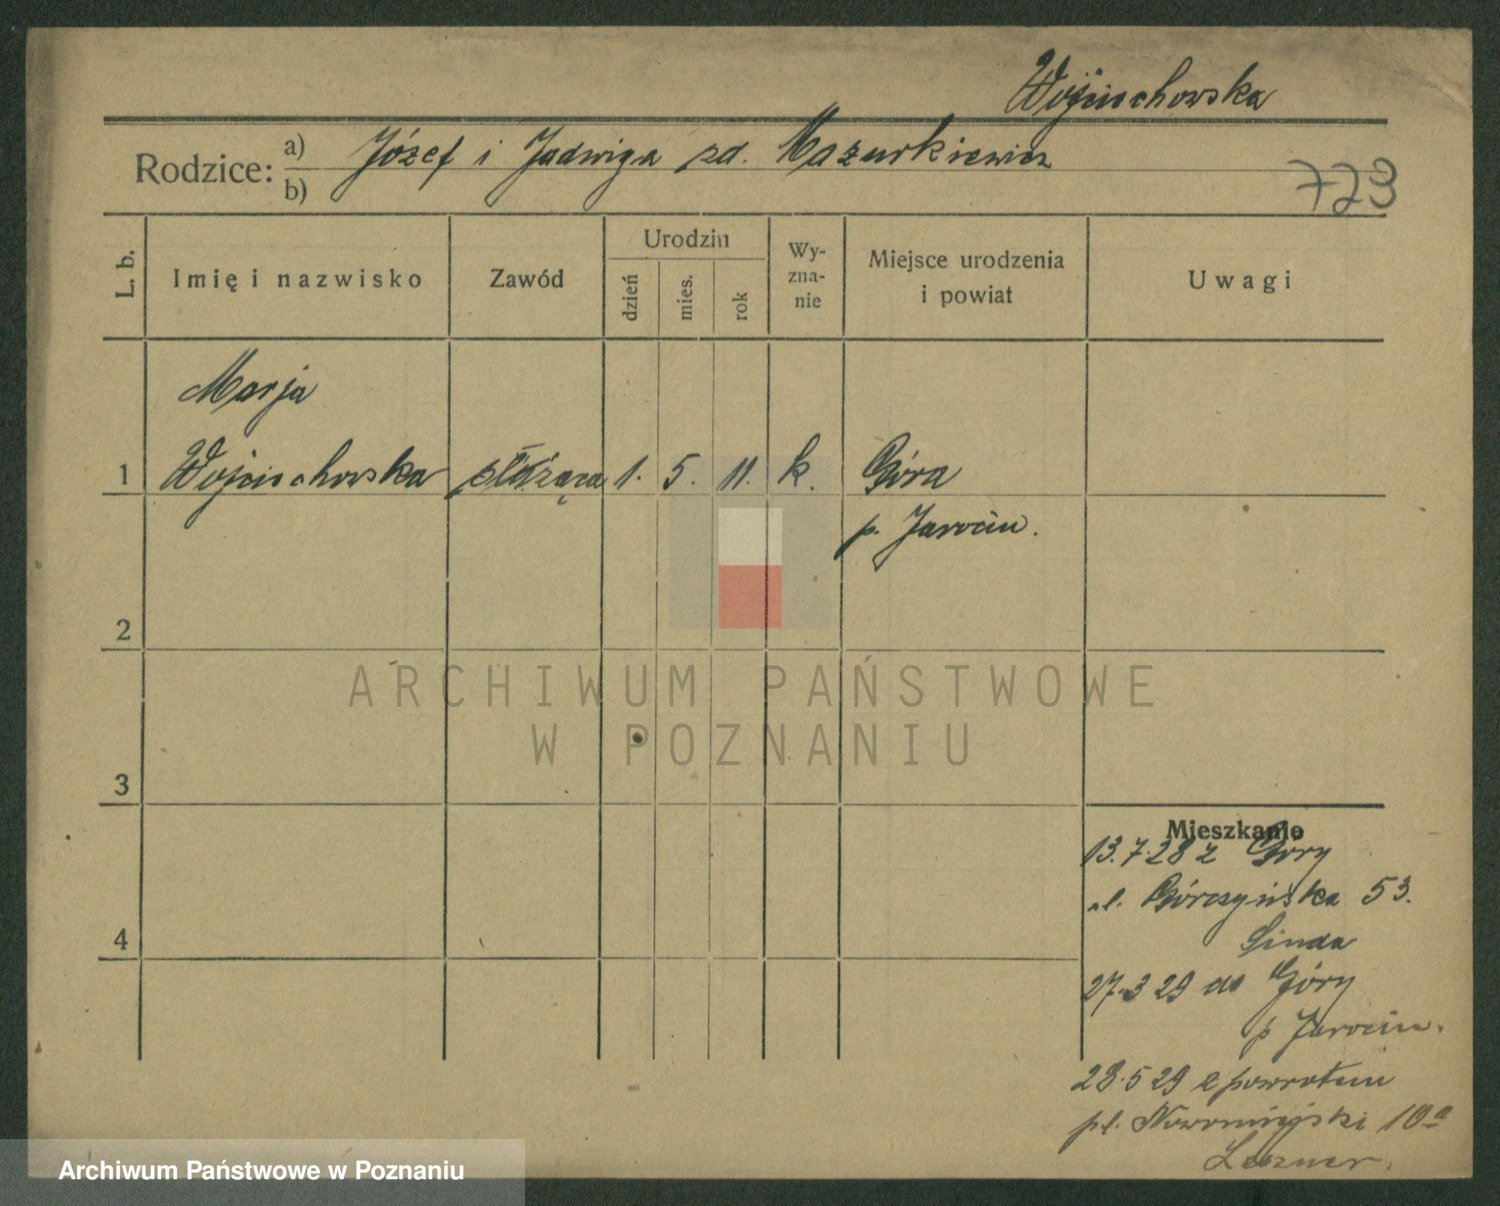 Wojciechowska
Rodzice: a) Józef i Jadwiga zd. Mazurkiewicz
b)
723
L. b.
Imię i nazwisko
Zawód
Urodzin
dzień
mies.
rok
Wy-
zna-
nie
Miejsce urodzenia
i powiat
Uwagi
Marja
1 Wojciechowska służąca 1. 5. 11. k. Góra
p. Jarocin.
2
3
4
ARCHIWUM PAŃSTWOWE
W POZNANIU
Mieszkanie
13.7.28 z Góry
ul. Górczyńska 53.
Linda
27.3 29 do Góry
p Jarocin.
28.5 29 z powrotem
pl. Nowomiejski 10a
Archiwum Państwowe w Poznaniu